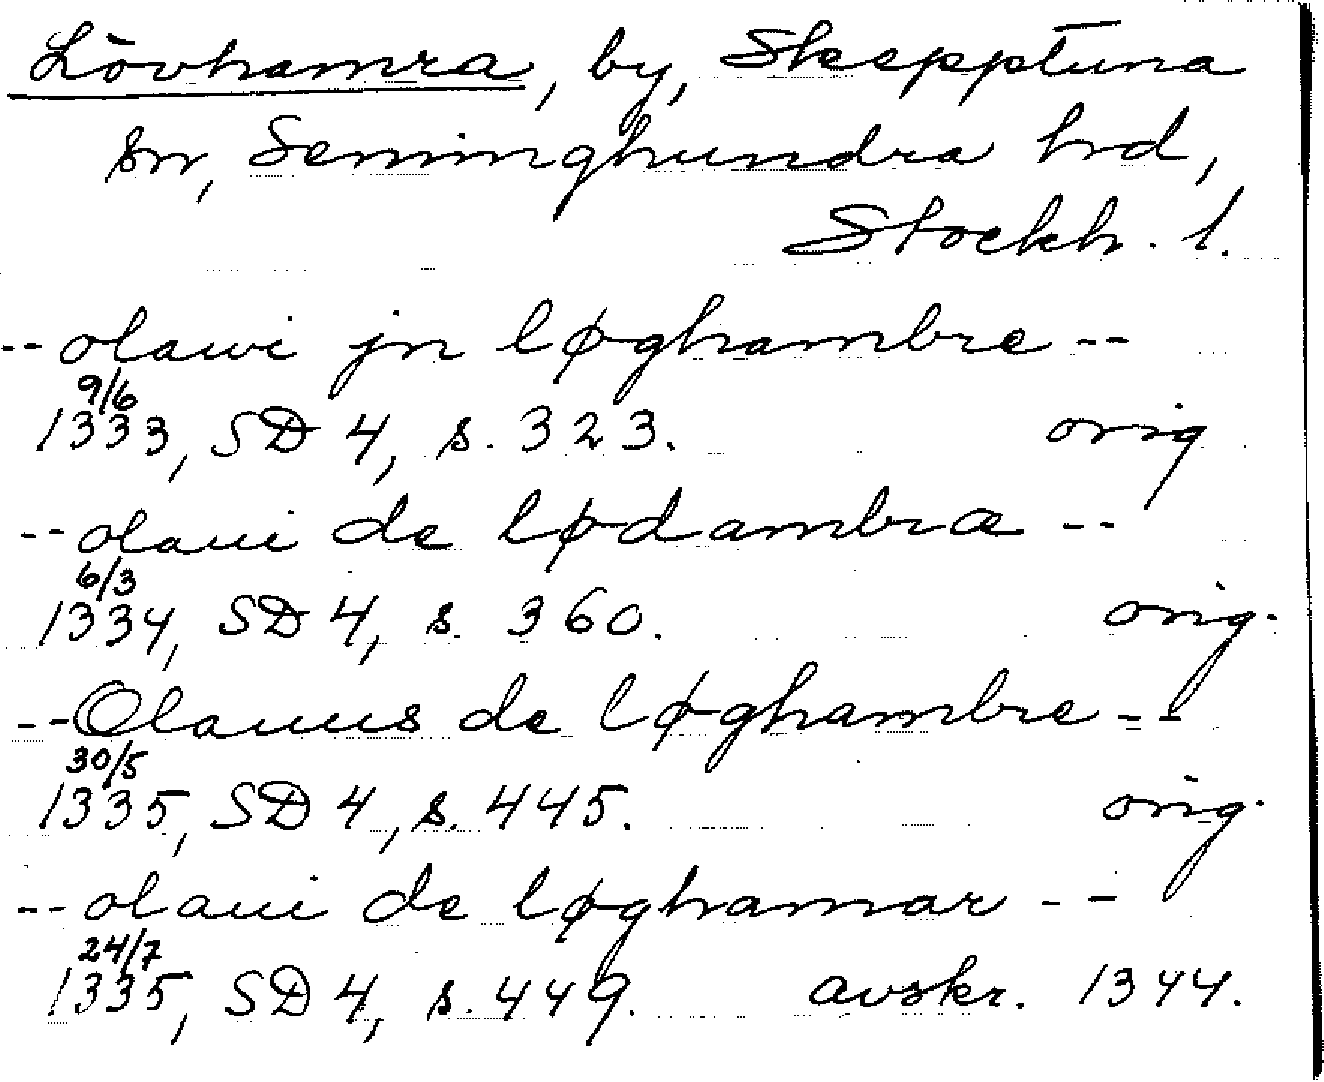 Lövhamra, by, Skepptuna
sn, Seminghundra hrd,
Stockh. l.
-- olawi jn løghambre --
9/6
1333, SD 4, s. 323. orig
-- olaui de lødambra --
6/3
1334, SD 4, s. 360. orig.
-- Olauus de løghambre --
30/5
1335, SD 4, s. 445. orig.
-- olaui de løghamar --
24/7
1335, SD 4, s. 449. avskr. 1344.